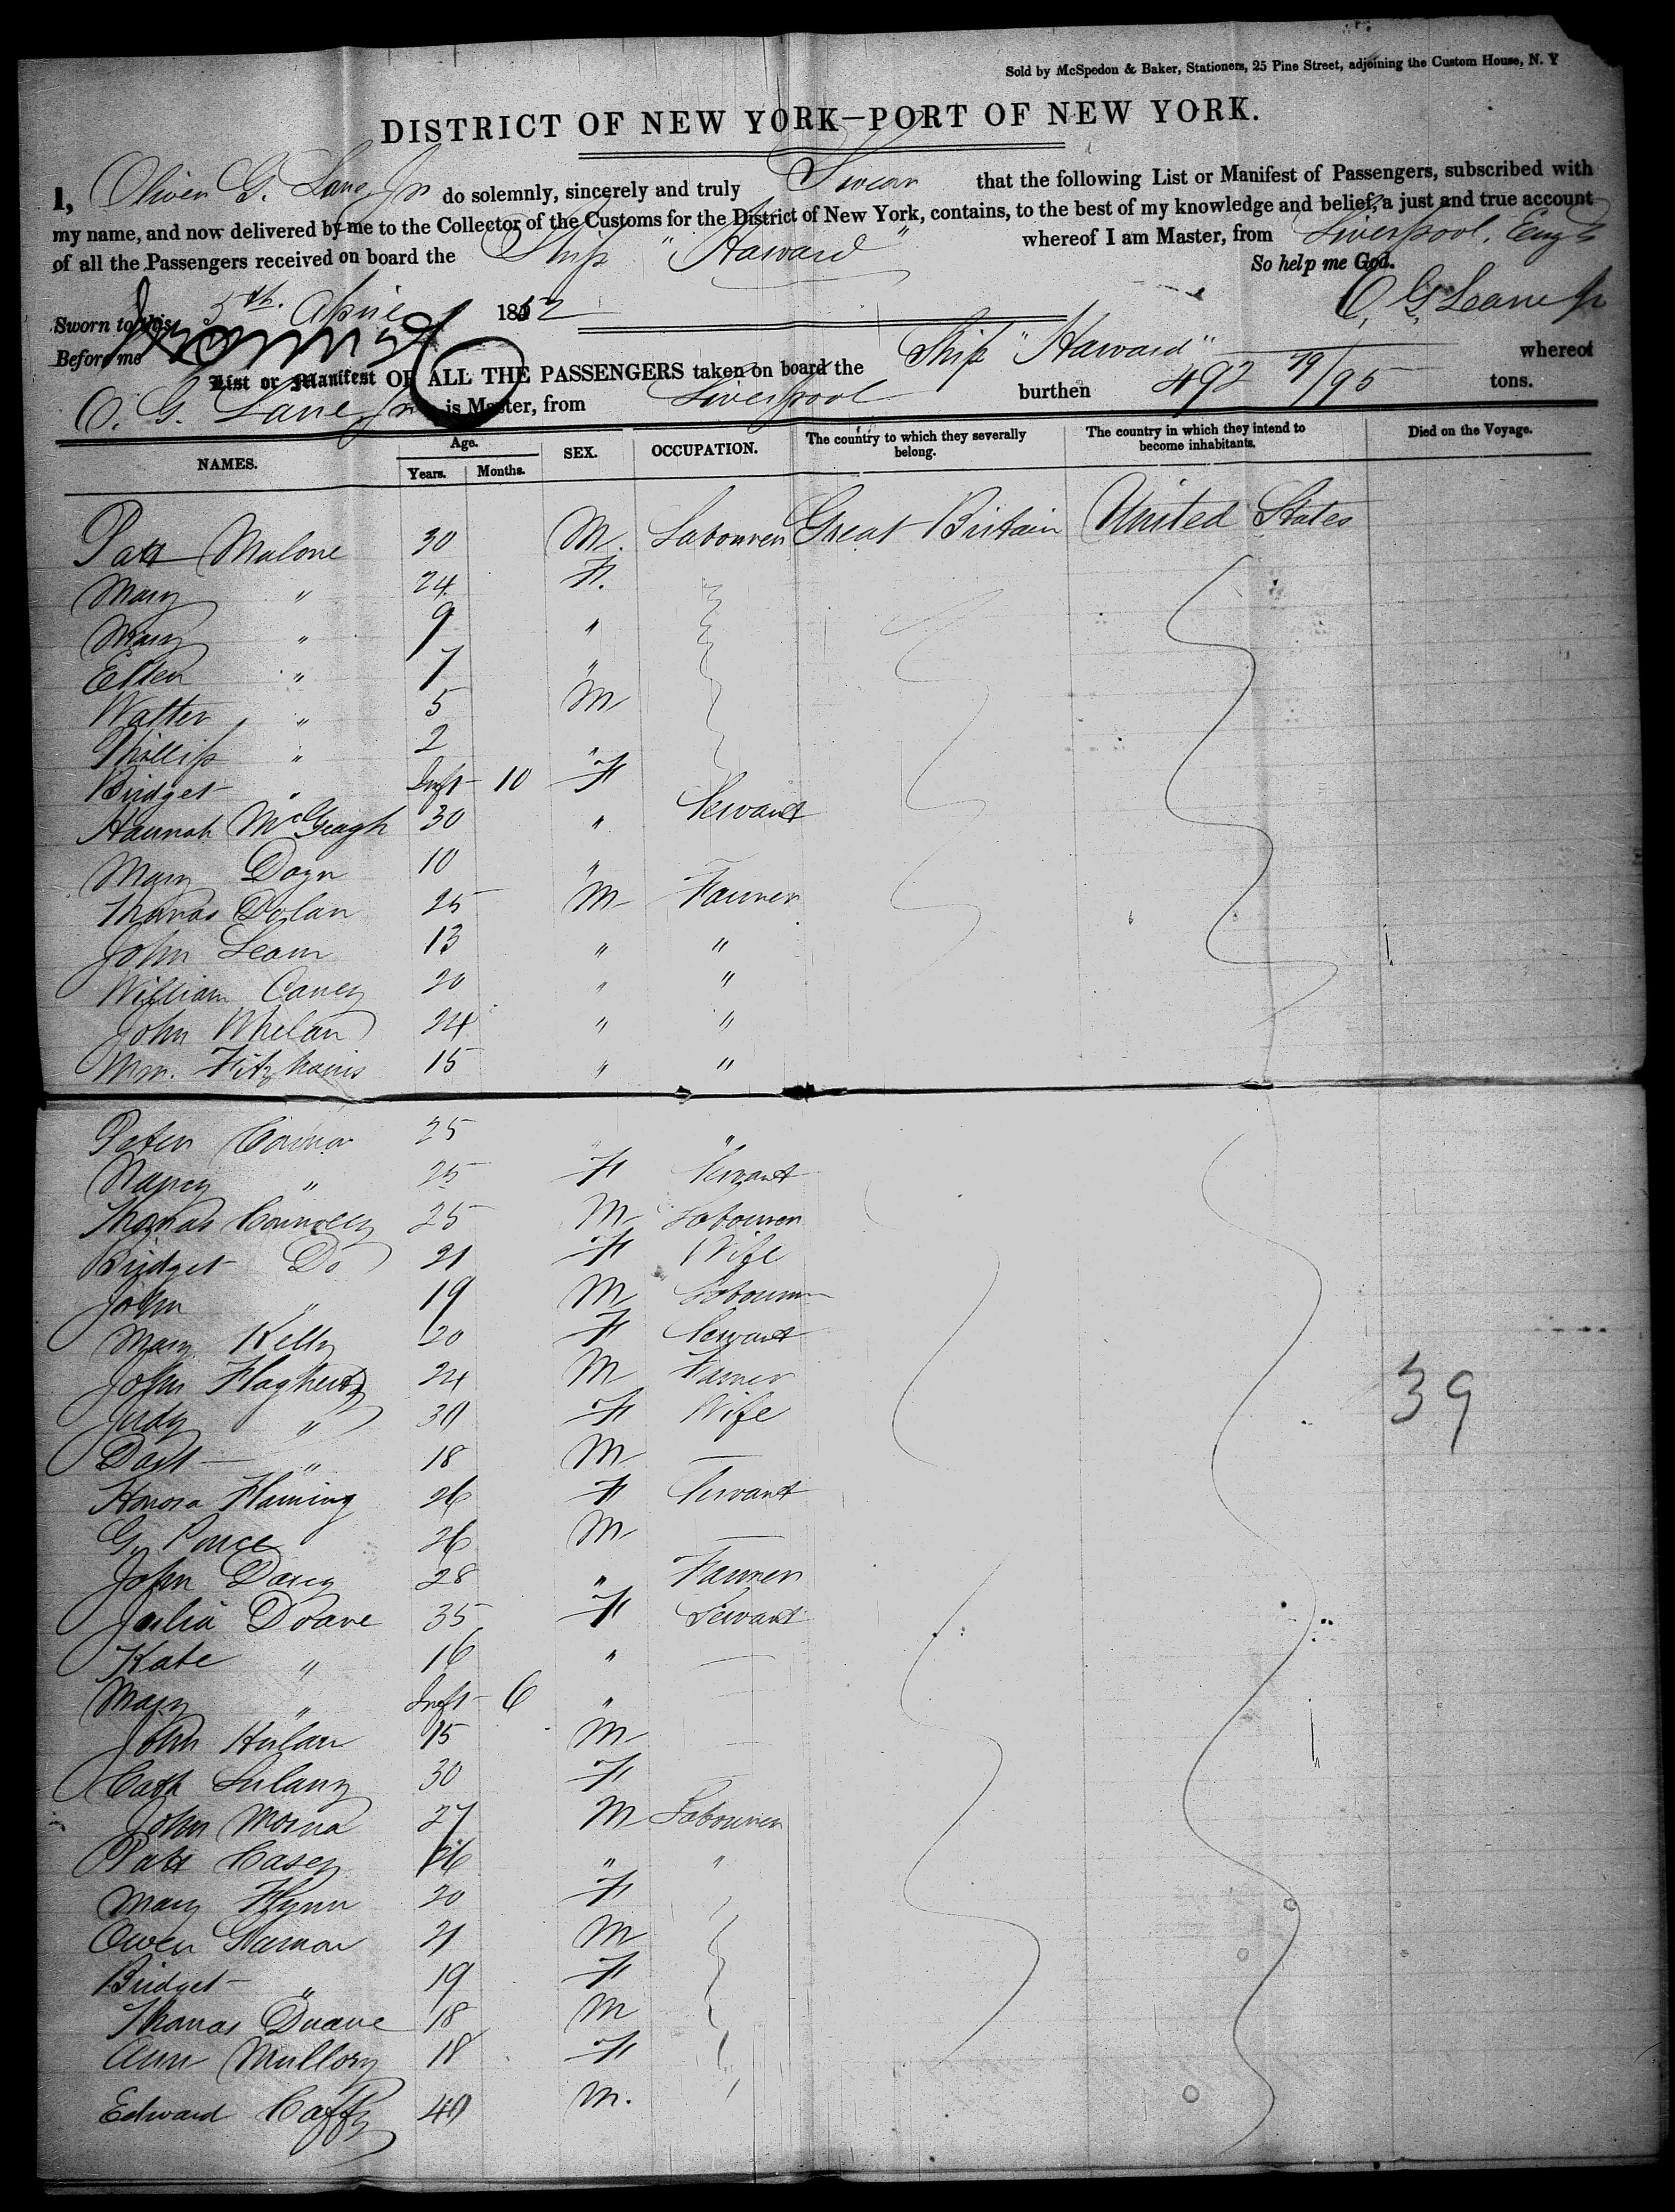 Sold by McSpedon & Baker, Stationers, 25 Pine Street, adjoining the Custom House, N. Y
DISTRICT OF NEW YORK—PORT OF NEW YORK.
I, Oliver G. Lane Jr do solemnly, sincerely and truly Swear that the following List or Manifest of Passengers, subscribed with
my name, and now delivered by me to the Collector of the Customs for the District of New York, contains, to the best of my knowledge and belief, a just and true account
of all the Passengers received on board the Ship "Harvard" whereof I am Master, from Liverpool, Engd
So help me God.
Sworn to this 5th. April 1852 O. G. Lane Jr
Before me
List or Manifest OF ALL THE PASSENGERS taken on board the Ship "Harvard" whereof
O. G. Lane Jr is Master, from Liverpool burthen 492 79/95 tons.
NAMES. Age. Years. Months. SEX. OCCUPATION. The country to which they severally belong. The country in which they intend to become inhabitants. Died on the Voyage.
Patk Malone 30 M. Labourer Great Britain United States
Mary " 24 F.
Mary " 9 "
Ellen " 7 "
Walter " 5 M
Phillip " 2 "
Bridget " Inft 10 F
Hannah McGeagh 30 " Servant
Mary 10 "
Thomas Dolan 25 M Farmer
John 13 " "
William 20 " "
John Whelan 24 " "
Wm. Fitzharris 15 " "
Peter Connor 25 " "
Nancy " 25 F Servant
Thomas Connolly 25 M Labourer
Bridget Do 21 F Wife
John " 19 M Labourer
Mary Kelly 20 F Servant
John Flagherty 24 M Farmer
Judy " 30 F Wife
" 18 M —
Honora Flaming 26 F Servant
G. 26 M —
John Darcy 28 " Farmer
Julia Doane 35 F Servant
Kate " 16 " —
Mary " Inft 6 "
John 15 M —
Cath 30 F —
John 27 M Labourer
Patk Casey 26 " "
Mary Flynn 20 F
Owen 21 M
Bridget " 19 F
Thomas Duane 18 M
Ann Mullory 18 F
Edward Caffy 40 M.
39